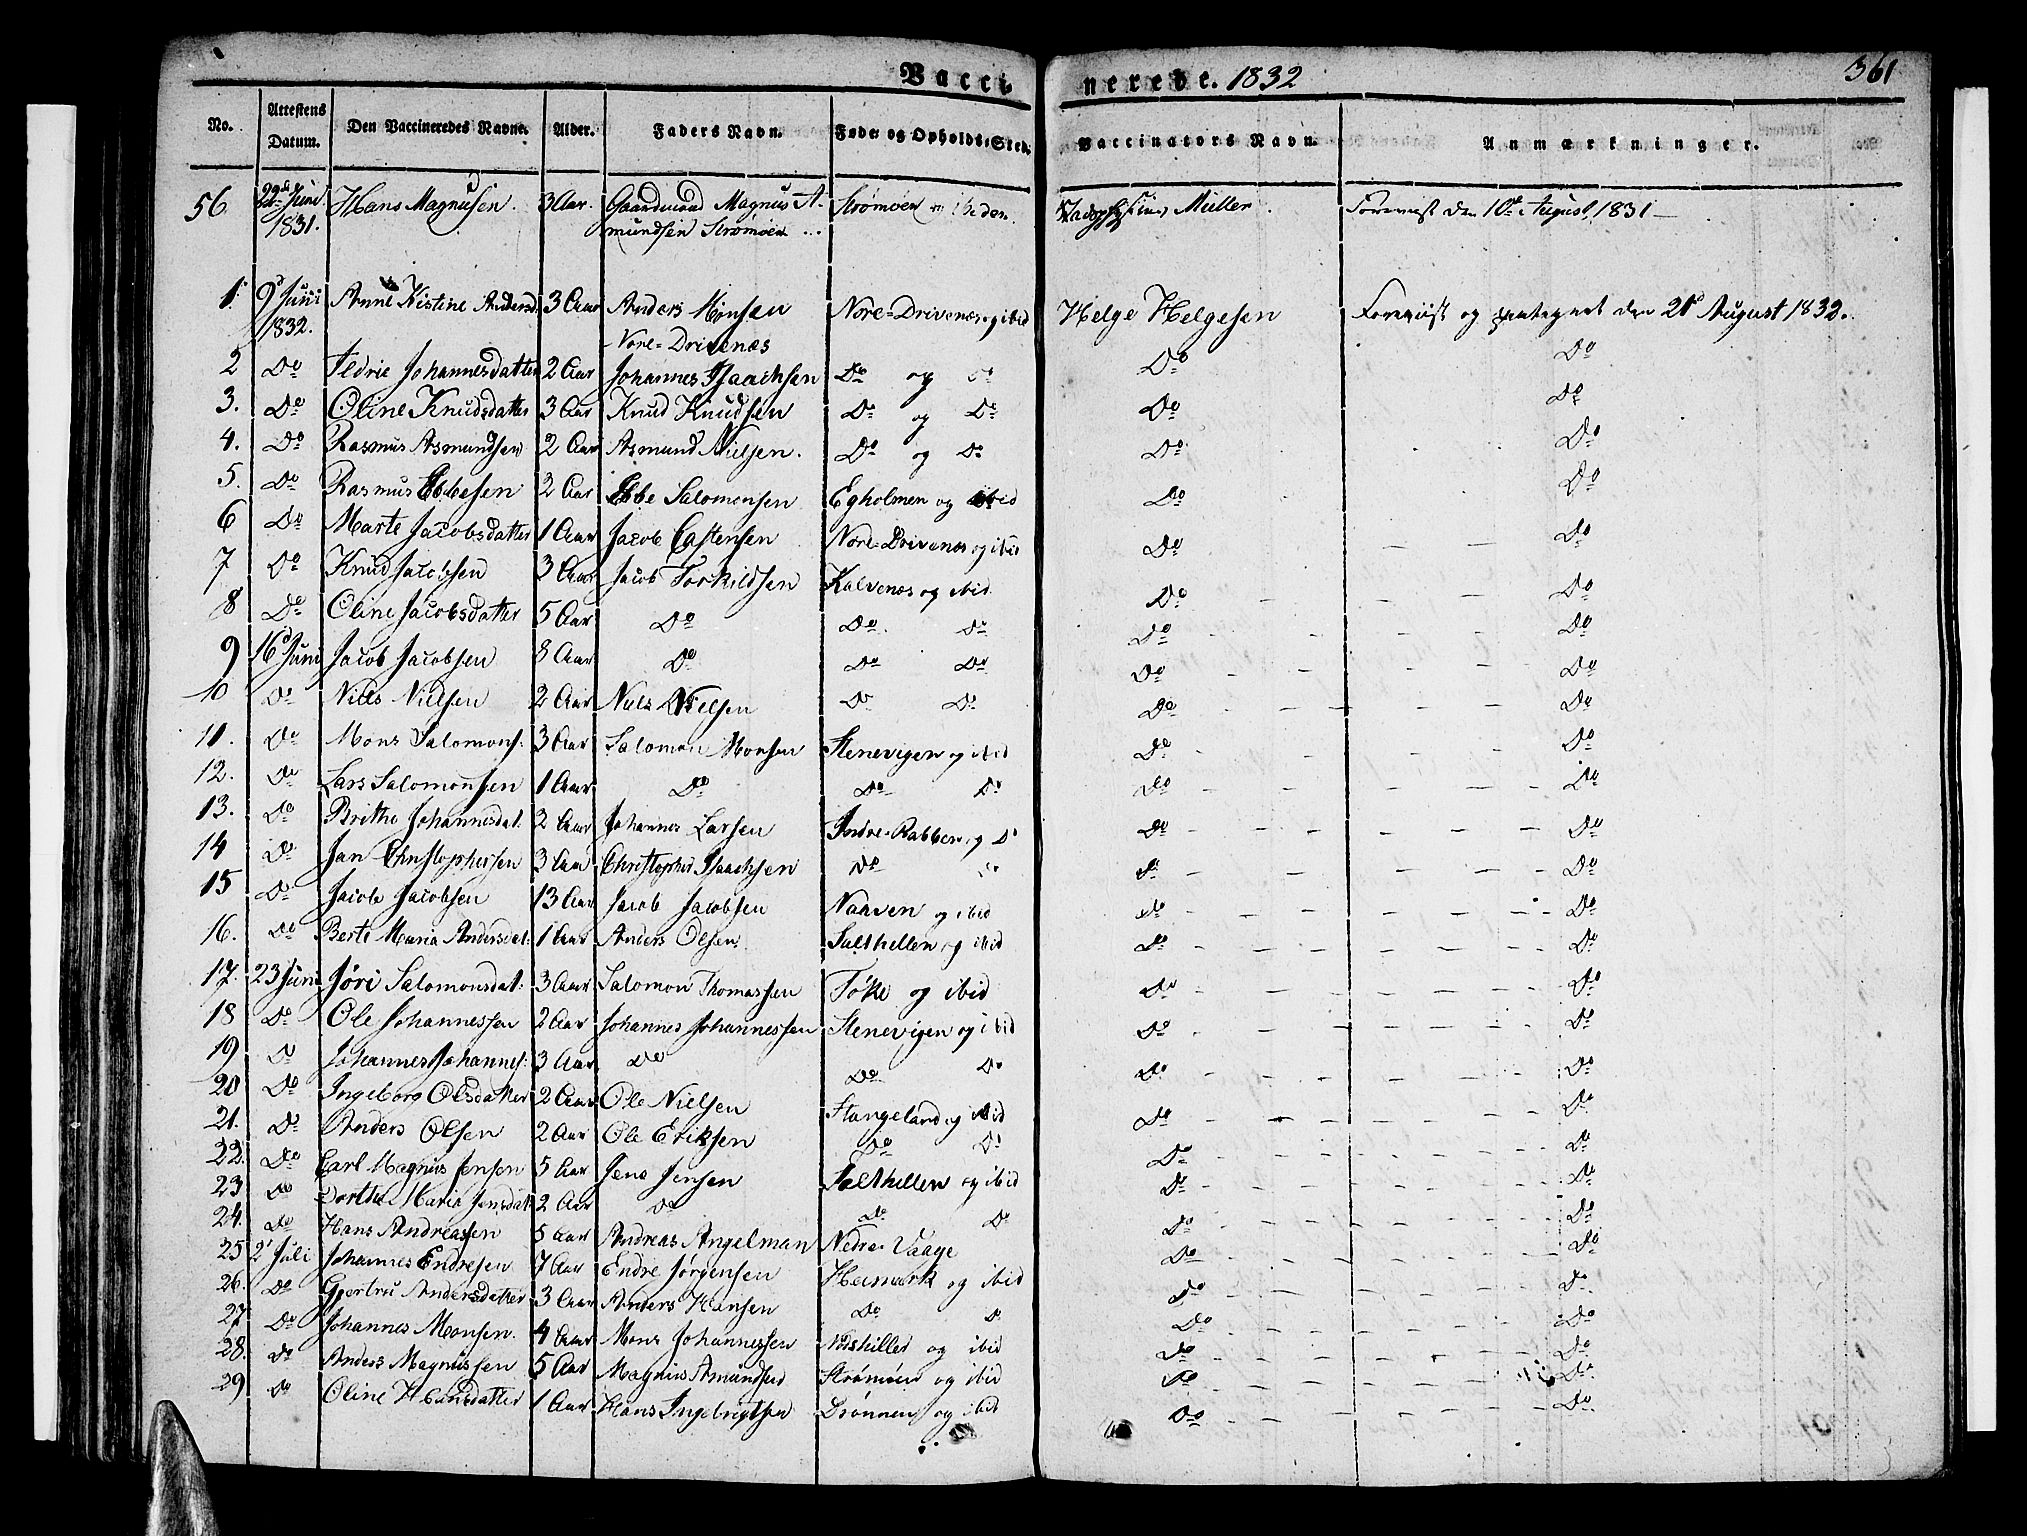 Vaccinerede. 1832 361
No. Attestens Datum. Den Vaccineredes Navne. Alder. Faders Navn. Føde- og Opholds-Sted. Vaccinators Navn. Anmærkninger.
56 22de Juni 1831. Hans Magnusen. 3 Aar. Gaardmand Magnus A-mundsen Strømøen Strømøen Müller Foreviist den 10de August 1831
1. 9d Juni 1832. Anne Kistine Andersd. 3 Aar Anders Monsen Nore-Drivenæs Nore-Drivenæs og ibid Helge Helgesen Foreviist og den 21d August 1832.
2 Do Johannesdatter 2 Aar Johannes Isaachsen Do og Do Do Do
3. Do Oline Knudsdatter 3 Aar Knud Knudsen Do og Do Do Do
4. Do Rasmus Asmundsen 2 Aar Asmund Nielsen. Do og Do Do Do
5. Do Rasmus Ebbesen 2 Aar Ebbe Salomonsen Egholmen og ibid Do Do
6 Do Marte Jacobsdatter 1 Aar Jacob Castensen Nore-Drivenæs og ibid Do Do
7 Do Knud Jacobsen 3 Aar Jacob Torkildsen Kalvenæs og ibid Do Do
8 Do Oline Jacobsdatter 5 Aar Do Do Do Do Do
9 16d Juni Jacob Jacobsen 8 Aar Do Do Do Do Do
10 Do Niels Nielsen 2 Aar Niels Nielsen Do Do Do Do
11. Do Mons Salomons: 3 Aar Salomon Monsen Stenevigen og ibid Do Do
12. Do Lars Salomonsen 1 Aar Do Do Do Do Do
13. Do Brithe Johannesdat. 2 Aar Johannes Larsen Indre-Rabben og Do Do Do
14 Do Jan Christophersen 3 Aar Christopher Isaachsen Do Do Do Do
15 Do Jacob Jacobsen 13 Aar Jacob Jacobsen Naaven og ibid Do Do
16. Do Berte Maria Andersdat. 1 Aar Anders Olsen Salthellen og ibid Do Do
17. 23 Juni Jøri Salomonsdat. 3 Aar Salomon Thomassen Føke og ibid Do Do
18 Do Ole Johannessen 2 Aar Johannes Johannessen Stenevigen og ibid Do Do
19 Do Johannes Johannes: 3 Aar Do Do Do Do Do
20 Do Ingeborg Olsdatter 2 Aar Ole Nielsen Stangeland og ibid Do Do
21. Do Anders Olsen 2 Aar Ole Eriksen Do Do Do Do
22. Do Carl Magnus Jensen 5 Aar Jens Jensen Salthellen og ibid Do Do
23 Do Dorthe Maria Jensdat 2 Aar Do Do Do Do Do
24. Do Hans Andreasen 5 Aar Andreas Angelman Nedre Vaage Do Do
25 2d Juli Johannes Endresen 7 Aar Endre Jørgensen Heimark og ibid Do Do
26. Do Gjertru Andersdatter 3 Aar Anders Hansen Do Do Do Do
27 Do Johannes Monsen. 4 Aar Mons Johannessen og ibid Do Do
28. Do Anders Magnussen 5 Aar Magnus Amundsen Strømøen og ibid Do Do
29 Do Oline Hansdatter 1 Aar Hans Ingebrigtsen Drønnen og ibid Do Do